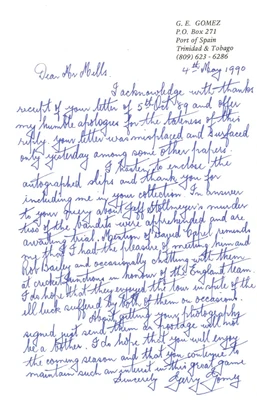 G. E. GOMEZ
P.O. Box 271
Port of Spain
Trinidad & Tobago
(809) 623 - 6286
4th May 1990
Dear Mr Mills
I acknowledge with thanks
receipt of your letter of 5th Oct '89 and offer
my humble apologies for the lateness of this
reply. Your letter was misplaced and surfaced
only yesterday among some other papers.
I hasten to enclose the
autographed slips and thank you for
including me in your collection. In answer
to your query about Jeff Stollmeyer's murder
two of the bandits were apprehended and are
awaiting trial. Mention of David Capel reminds
my that I had the pleasure of meeting him and
Rob Bailey and occasionally chatting with them
at cricket functions in honour of the England team.
I do hope that they enjoyed the tour in spite of the
ill luck suffered by both of them on occasions.
About getting your photographs
signed just send them as postage will not
be a bother. I do hope that you will enjoy
the coming season and that you continue to
maintain such an interest in this great game
Sincerely Gerry Gomez